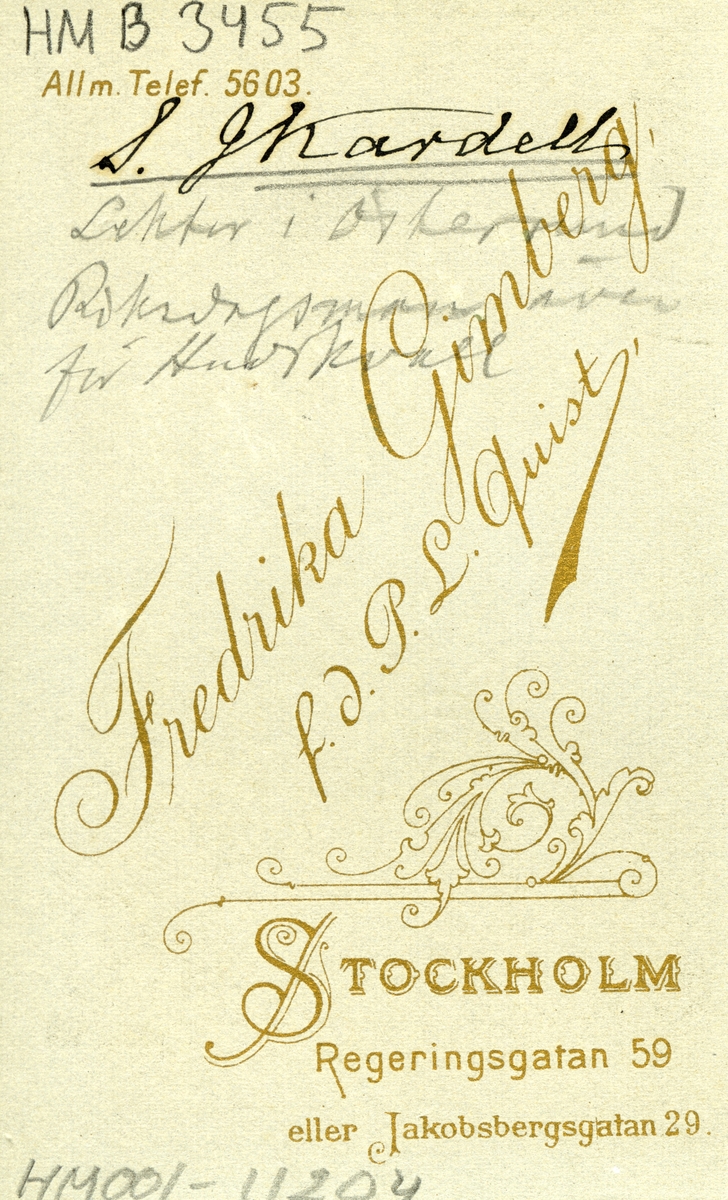 HM B 3455
Allm. Telef. 5603.
S. J Kardell
Lektor i Östersund
Riksdagsman även
för Hudiksvall
Fredrika Gimberg,
f.d. P. L. Quist,
STOCKHOLM
Regeringsgatan 59
eller Jakobsbergsgatan 29.
HM001-11204